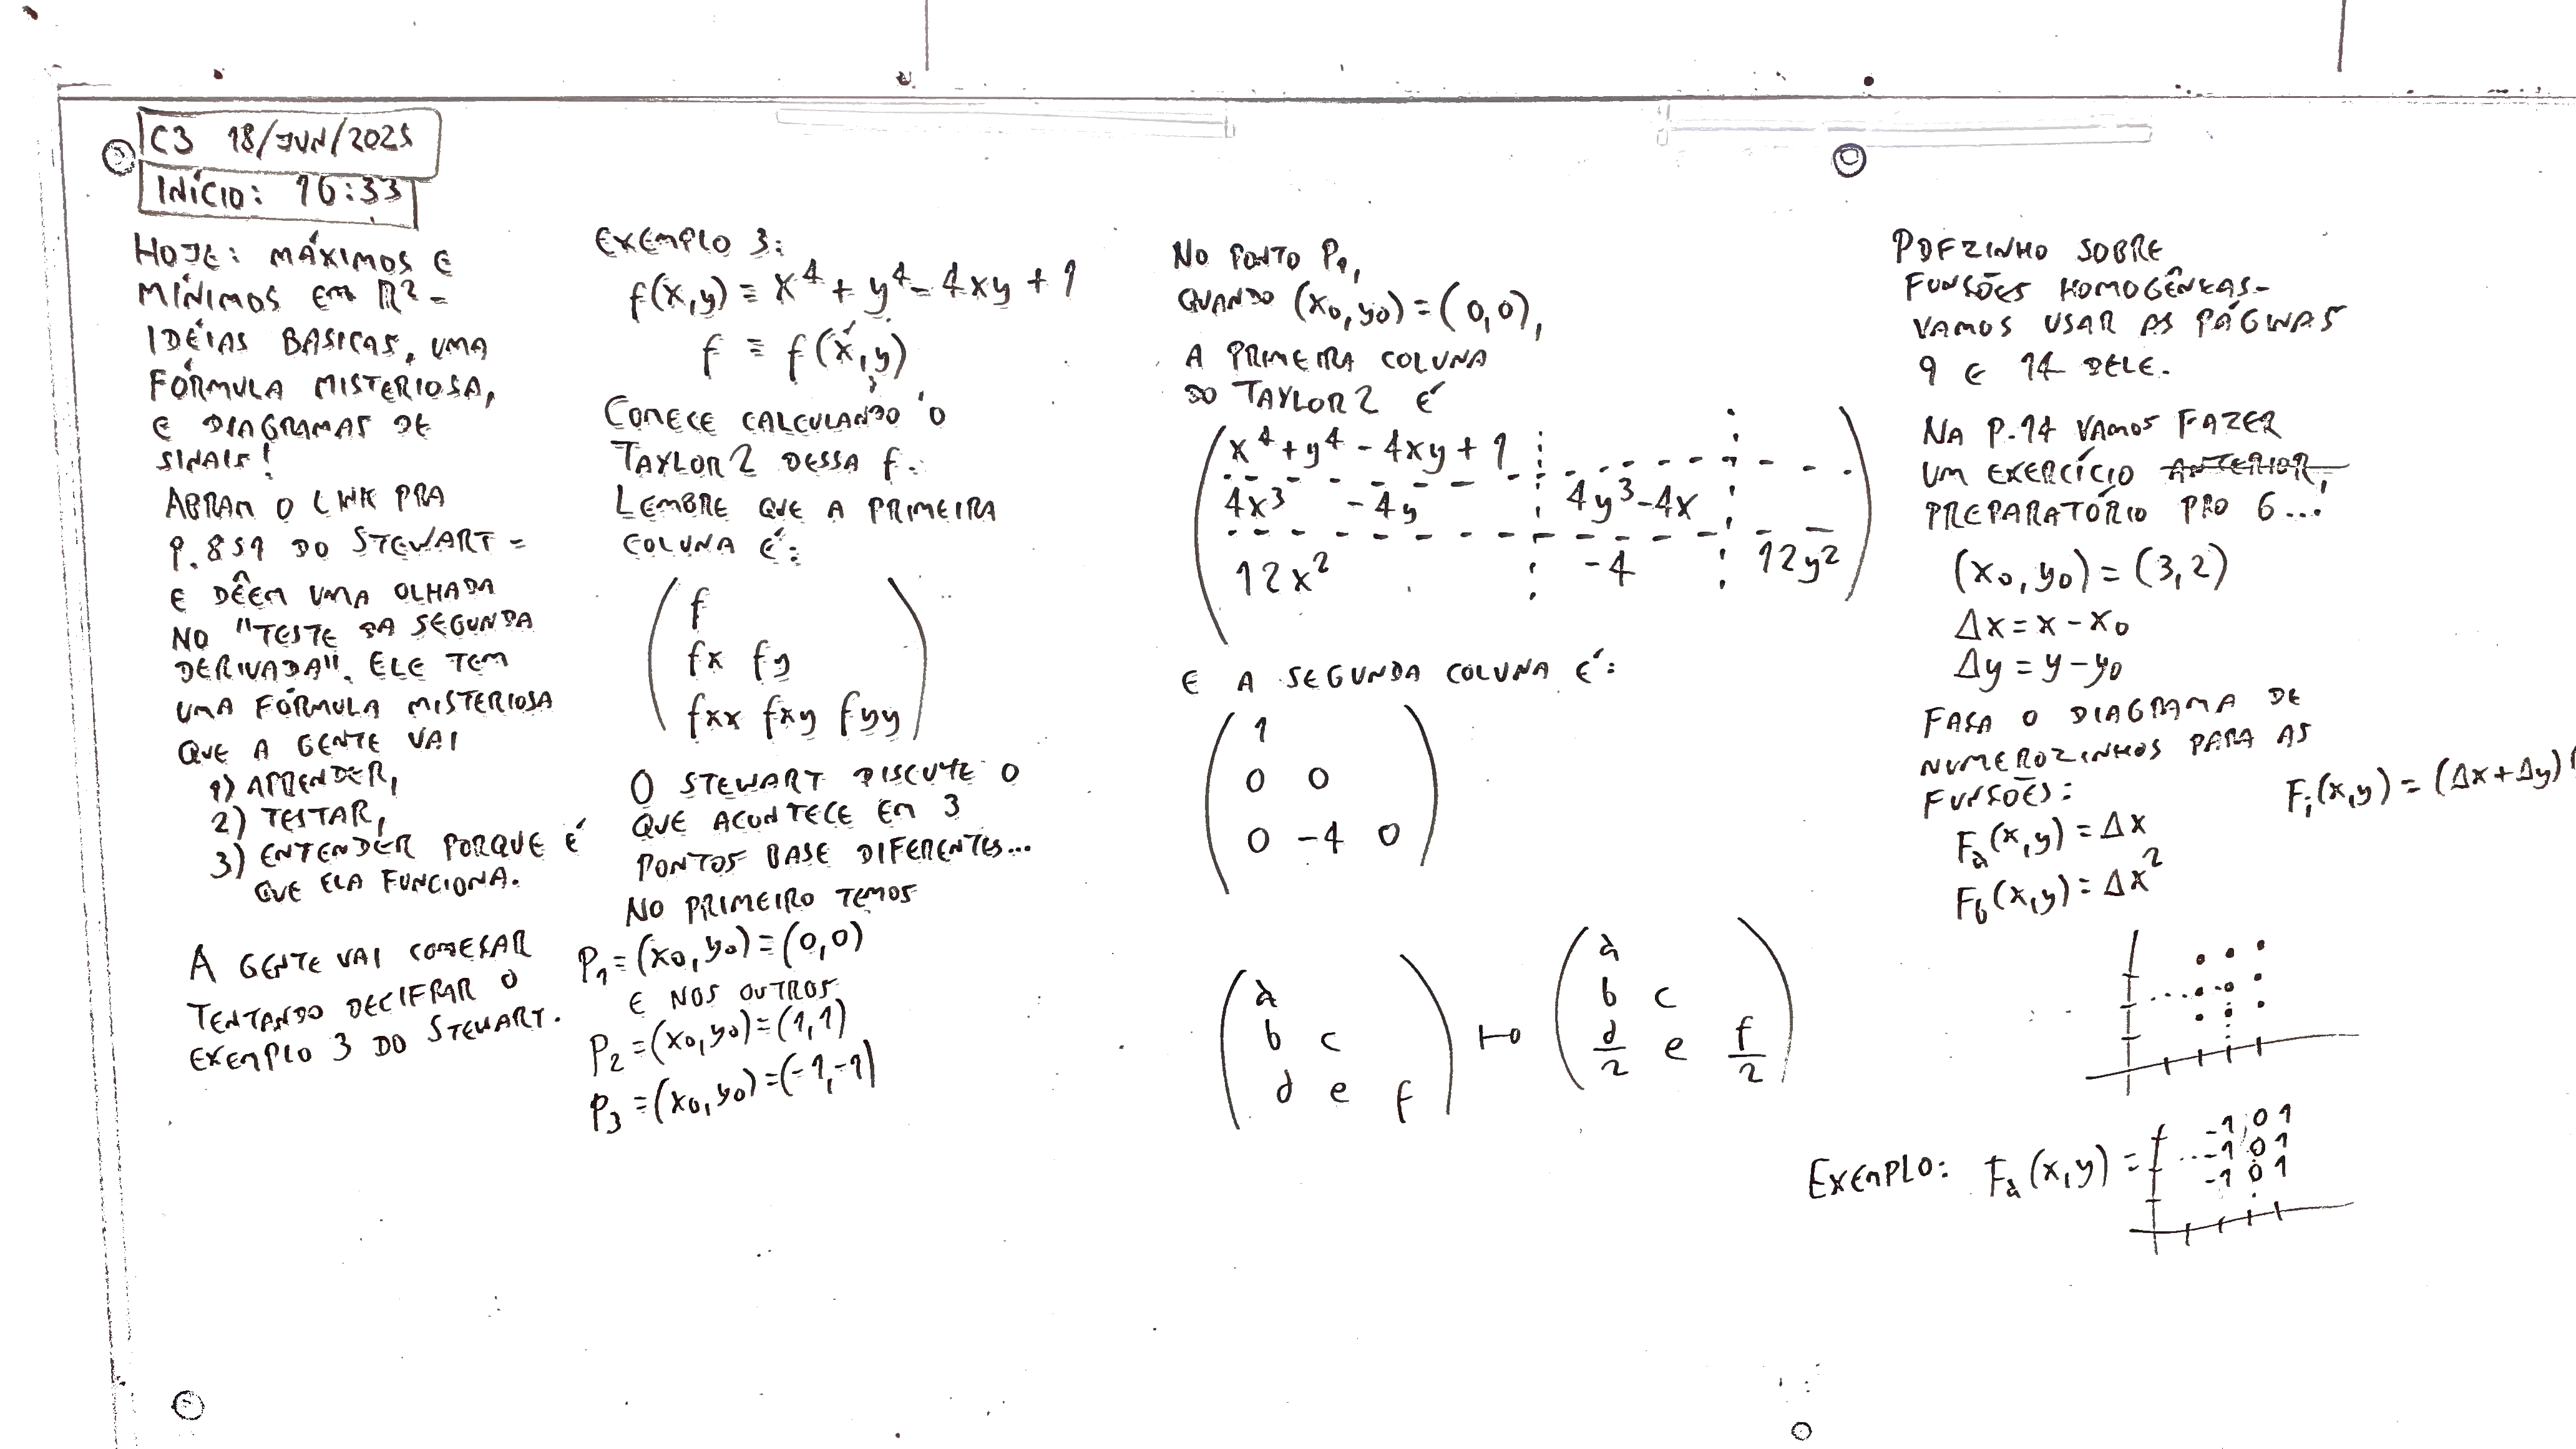 C3 18/JUN/2025
INÍCIO: 16:33
HOJE: MÁXIMOS E
MÍNIMOS EM R² -
IDÉIAS BÁSICAS, UMA
FÓRMULA MISTERIOSA,
E DIAGRAMAS DE
SINAIS!
ABRAM O LINK PRA
P.851 DO STEWART -
E DÊEM UMA OLHADA
NO "TESTE DA SEGUNDA
DERIVADA". ELE TEM
UMA FÓRMULA MISTERIOSA
QUE A GENTE VAI
1) APRENDER,
2) TESTAR,
3) ENTENDER PORQUE É
QUE ELA FUNCIONA.
A GENTE VAI COMEÇAR
TENTANDO DECIFRAR O
EXEMPLO 3 DO STEWART.
EXEMPLO 3:
f(x,y) = x⁴ + y⁴ - 4xy + 1
f = f(x,y)
COMECE CALCULANDO O
TAYLOR2 DESSA f.
LEMBRE QUE A PRIMEIRA
COLUNA É:
f
fx fy
fxx fxy fyy
O STEWART DISCUTE O
QUE ACONTECE EM 3
PONTOS BASE DIFERENTES...
NO PRIMEIRO TEMOS
P₁ = (x₀,y₀) = (0,0)
E NOS OUTROS
P₂ = (x₀,y₀) = (1,1)
P₃ = (x₀,y₀) = (-1,-1)
NO PONTO P₁,
QUANDO (x₀,y₀) = (0,0),
A PRIMEIRA COLUNA
DO TAYLOR2 É
x⁴ + y⁴ - 4xy + 1
4x³ - 4y 4y³ - 4x
12x² -4 12y²
E A SEGUNDA COLUNA É:
1
0 0
0 -4 0
(a b c d e f) ↦ (a b c d/2 e f/2)
PDFZINHO SOBRE
FUNÇÕES HOMOGÊNEAS -
VAMOS USAR AS PÁGINAS
9 E 14 DELE.
NA P.14 VAMOS FAZER
UM EXERCÍCIO ANTERIOR,
PREPARATÓRIO PRO 6...
(x₀,y₀) = (3,2)
Δx = x - x₀
Δy = y - y₀
FAÇA O DIAGRAMA DE
NUMEROZINHOS PARA AS
FUNÇÕES:
Fa(x,y) = Δx
Fb(x,y) = Δx²
Fi(x,y) = (Δx + Δy)
EXEMPLO: Fa(x,y) =
-1 0 1
-1 0 1
-1 0 1